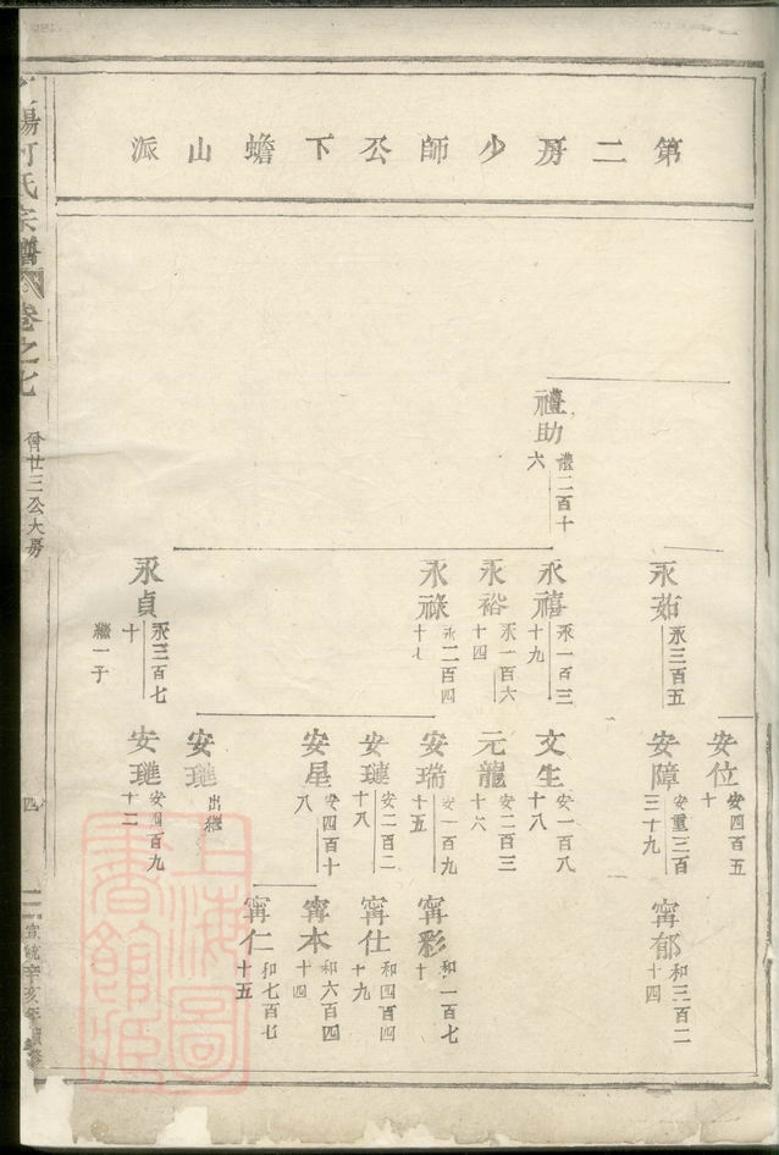 第二房少師公下蟾山派
禮助
禮二百十
六
永茹
永三百五
永禧
永一百三
十九
永裕
永一百六
十四
永祿
永二百四
十
永貞
永三百七
十
繼一子
安位
安四百五
十
安障
安重三百
三十九
文生
安一百八
十八
元龍
安二百三
十六
安瑞
安一百九
十五
安璉
安二百二
十八
安星
安四百十
八
安璡
出繼
安璡
安四百九
十二
甯郁
和三百二
十四
甯彩
和一百七
十
甯仕
和四百四
十九
甯本
和六百四
十四
甯仁
和七百七
十五
陽何氏宗譜
卷之七
曾廿三公大房
四
宣統辛亥年續修
上海圖書館藏